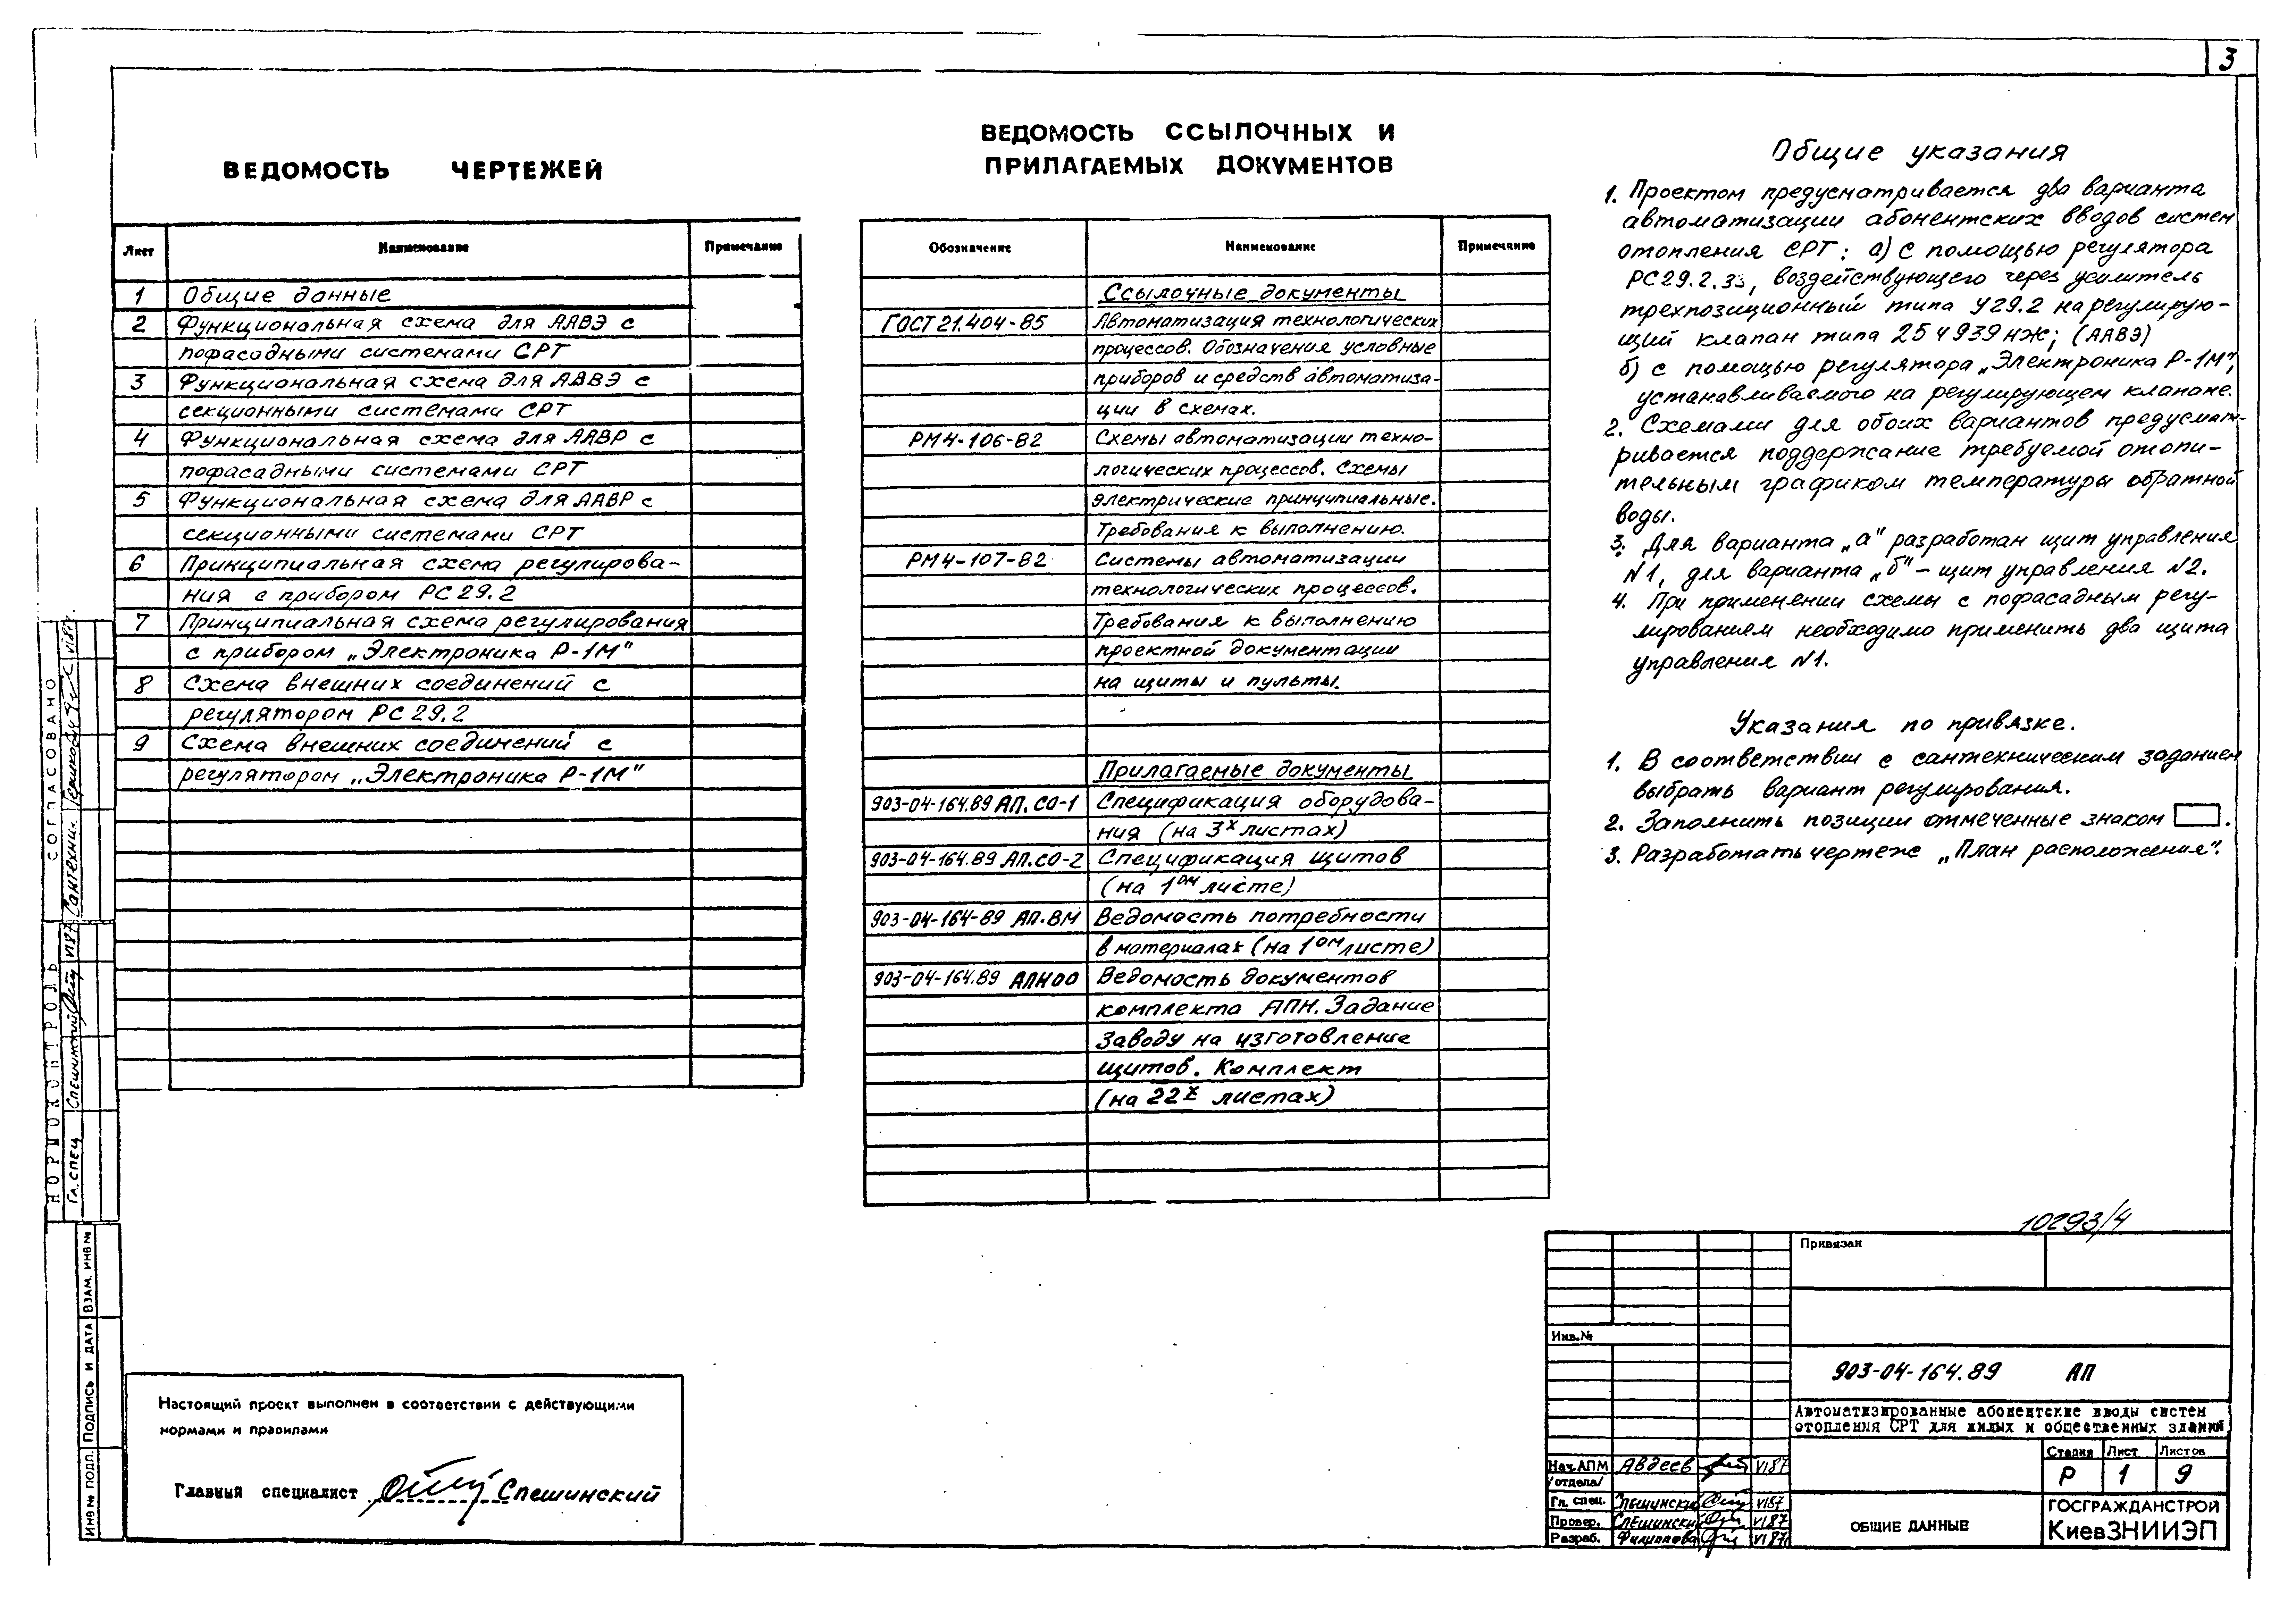 3
ВЕДОМОСТЬ ЧЕРТЕЖЕЙ
Лист Наименование Примечание
1 Общие данные
2 Функциональная схема для ААВЭ с
пофасадными системами СРТ
3 Функциональная схема для ААВЭ с
секционными системами СРТ
4 Функциональная схема для ААВР с
пофасадными системами СРТ
5 Функциональная схема для ААВР с
секционными системами СРТ
6 Принципиальная схема регулирова-
ния с прибором РС29.2
7 Принципиальная схема регулирования
с прибором „Электроника Р-1М"
8 Схема внешних соединений с
регулятором РС29.2
9 Схема внешних соединений с
регулятором „Электроника Р-1М"
ВЕДОМОСТЬ ССЫЛОЧНЫХ И
ПРИЛАГАЕМЫХ ДОКУМЕНТОВ
Обозначение Наименование Примечание
Ссылочные документы
ГОСТ 21.404-85 Автоматизация технологических
процессов. Обозначения условные
приборов и средств автоматиза-
ции в схемах.
РМ4-106-82 Схемы автоматизации техно-
логических процессов. Схемы
электрические принципиальные.
Требования к выполнению.
РМ4-107-82 Системы автоматизации
технологических процессов.
Требования к выполнению
проектной документации
на щиты и пульты.
Прилагаемые документы
903-04-164.89 АП.СО-1 Спецификация оборудова-
ния (на 3х листах)
903-04-164.89 АП.СО-2 Спецификация щитов
(на 1ом листе)
903-04-164-89 АП.ВМ Ведомость потребности
в материалах (на 1ом листе)
903-04-164.89 АПН00 Ведомость документов
комплекта АПН. Задание
заводу на изготовление
щитов. Комплект
(на 22х листах)
Общие указания
1. Проектом предусматривается два варианта
автоматизации абонентских вводов систем
отопления СРТ: а) с помощью регулятора
РС29.2.33, воздействующего через усилитель
трехпозиционный типа У29.2 на регулирую-
щий клапан типа 25ч939НЖ; (ААВЭ)
б) с помощью регулятора „Электроника Р-1М",
устанавливаемого на регулирующем клапане.
2. Схемами для обоих вариантов предусмат-
ривается поддержание требуемой отопи-
тельным графиком температуры обратной
воды.
3. Для варианта „а" разработан щит управления
N1, для варианта „б" - щит управления N2.
4. При применении схемы с пофасадным регу-
лированием необходимо применить два щита
управления N1.
Указания по привязке.
1. В соответствии с сантехническим заданием
выбрать вариант регулирования.
2. Заполнить позиции отмеченные знаком .
3. Разработать чертеж „План расположения".
СОГЛАСОВАНО
Сантехнич. VI87г.
НОРМОКОНТРОЛЬ
Гл. спец Спешинский VI87
ИНВ № ПОДЛ. ПОДПИСЬ И ДАТА ВЗАМ. ИНВ №
Настоящий проект выполнен в соответствии с действующими
нормами и правилами
Главный специалист Спешинский
10293/4
Привязан
Инв.№
903-04-164.89 АП
Автоматизированные абонентские вводы систем
отопления СРТ для жилых и общественных зданий
Стадия Лист Листов
Р 1 9
Нач.АПМ Авдеев VI87
/отдела/
Гл. спец. Спешинский VI87
Провер. Спешинский VI87
Разраб. Филиппова VI87г.
ОБЩИЕ ДАННЫЕ
ГОСГРАЖДАНСТРОЙ
КиевЗНИИЭП